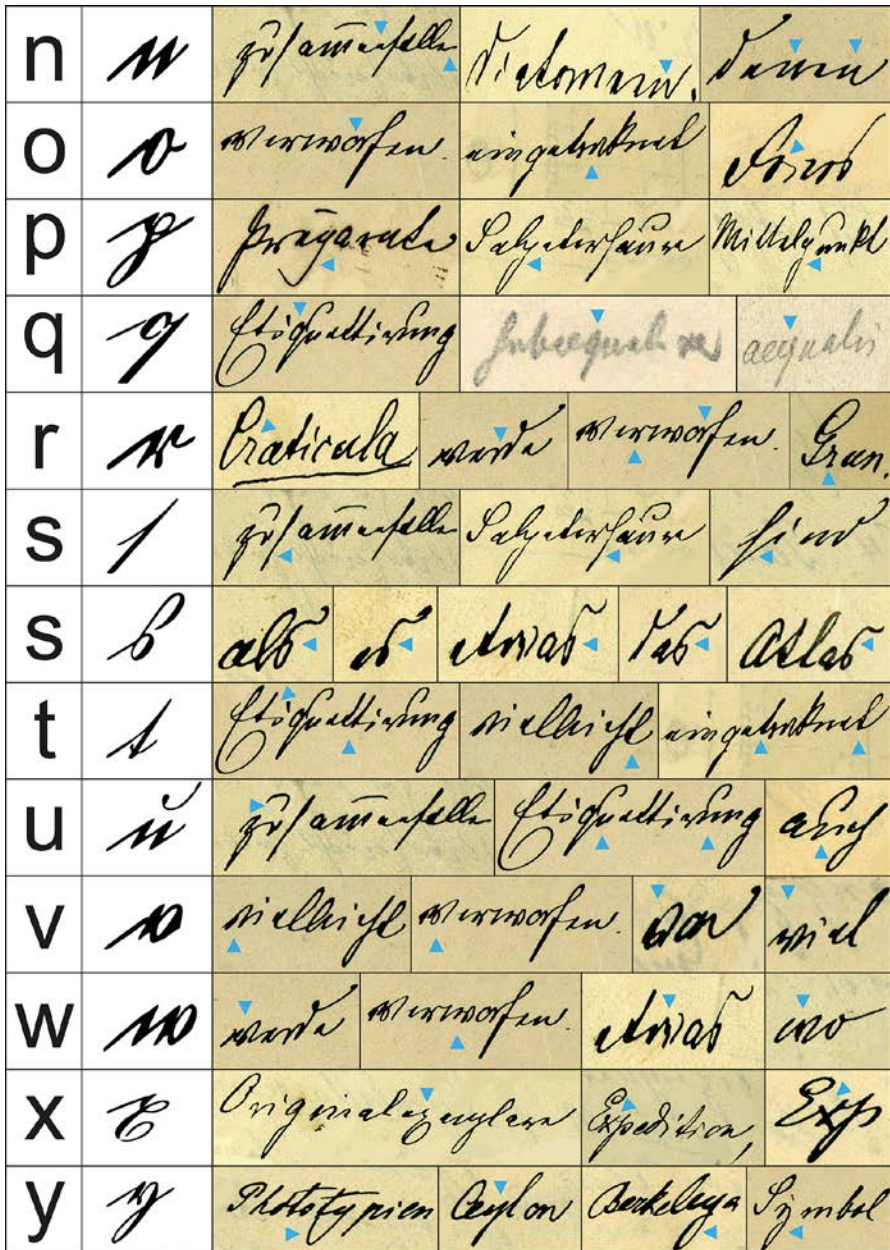 n n zusammenfalle Diatomeen. denen
o o verworfen. eingetroknet Foros
p p Präparate Salpetersäure Mittelpunkt
q q Etiquettirung subaequales aequalis
r r Craticula werde verworfen. Grun.
s s zusammenfalle Salpetersäure sind
s s als es etwas das Atlas
t t Etiquettirung vielleicht eingetroknet
u u zusammenfalle Etiquettirung auch
v v vielleicht verworfen. von viel
w w werde verworfen. etwas wo
x x Originalexemplare Expedition, Exp
y y Phototypien Ceylon Berkeleya Symbol